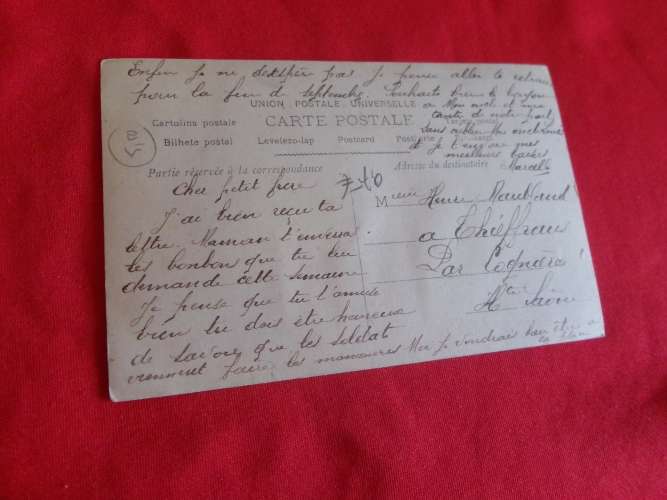 Enfin je ne desespère pas je pense aller te retrouver
pour la fin de septembre. Souhaite bien le bonjour
a Mon oncle et ma
tante de notre part
sans oublier
et je t'envoie mes
meilleurs baisers
Marcelle
UNION POSTALE UNIVERSELLE
CARTE POSTALE
Cartolina postale
Bilhete postal Levelezo-lap Postcard
Partie réservée à la correspondance
Adresse du destinataire
Cher petit frère
J'ai bien reçu ta
lettre. Maman t'enverra
les bonbons que tu lui
demande cette semaine
Je pense que tu t'amuse
bien tu dois être heureux
de savoir que les soldat
viennent faire les manoeuvres Moi je voudrais bien être a
ta place
Monsieur Henri
a Thieffrans
Par Cognières
Hte Saône